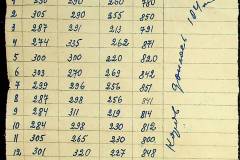 1 230 290 260 780
2 305 290 255 850
3 287 291 213 791
4 274 335 262 871
5 300 300 220 820
6 303 270 269 842
7 299 296 256 851
8 287 298 256 841
9 284 311 219 814
10 284 298 230 812
11 305 265 230 800
12 301 320 227 848